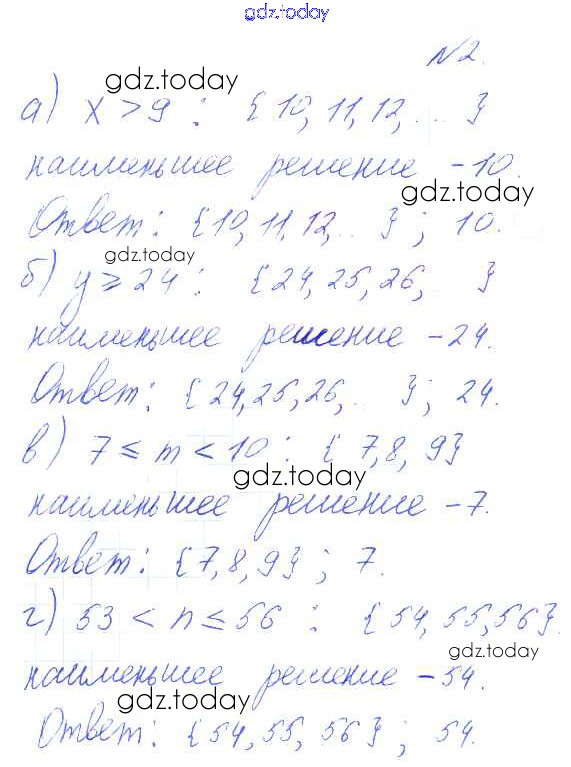 gdz.today
N2.
gdz.today
а) x > 9 : {10, 11, 12, ... }
наименьшее решение - 10.
gdz.today
Ответ: {10, 11, 12, .. } ; 10.
gdz.today
б) y ⩾ 24 : {24, 25, 26, .. }
наименьшее решение - 24.
Ответ: {24, 25, 26, .. } ; 24.
в) 7 ≤ m < 10 : {7, 8, 9}
gdz.today
наименьшее решение - 7.
Ответ: {7, 8, 9} ; 7.
г) 53 < n ≤ 56 : {54, 55, 56}.
gdz.today
наименьшее решение - 54.
gdz.today
Ответ: {54, 55, 56} ; 54.